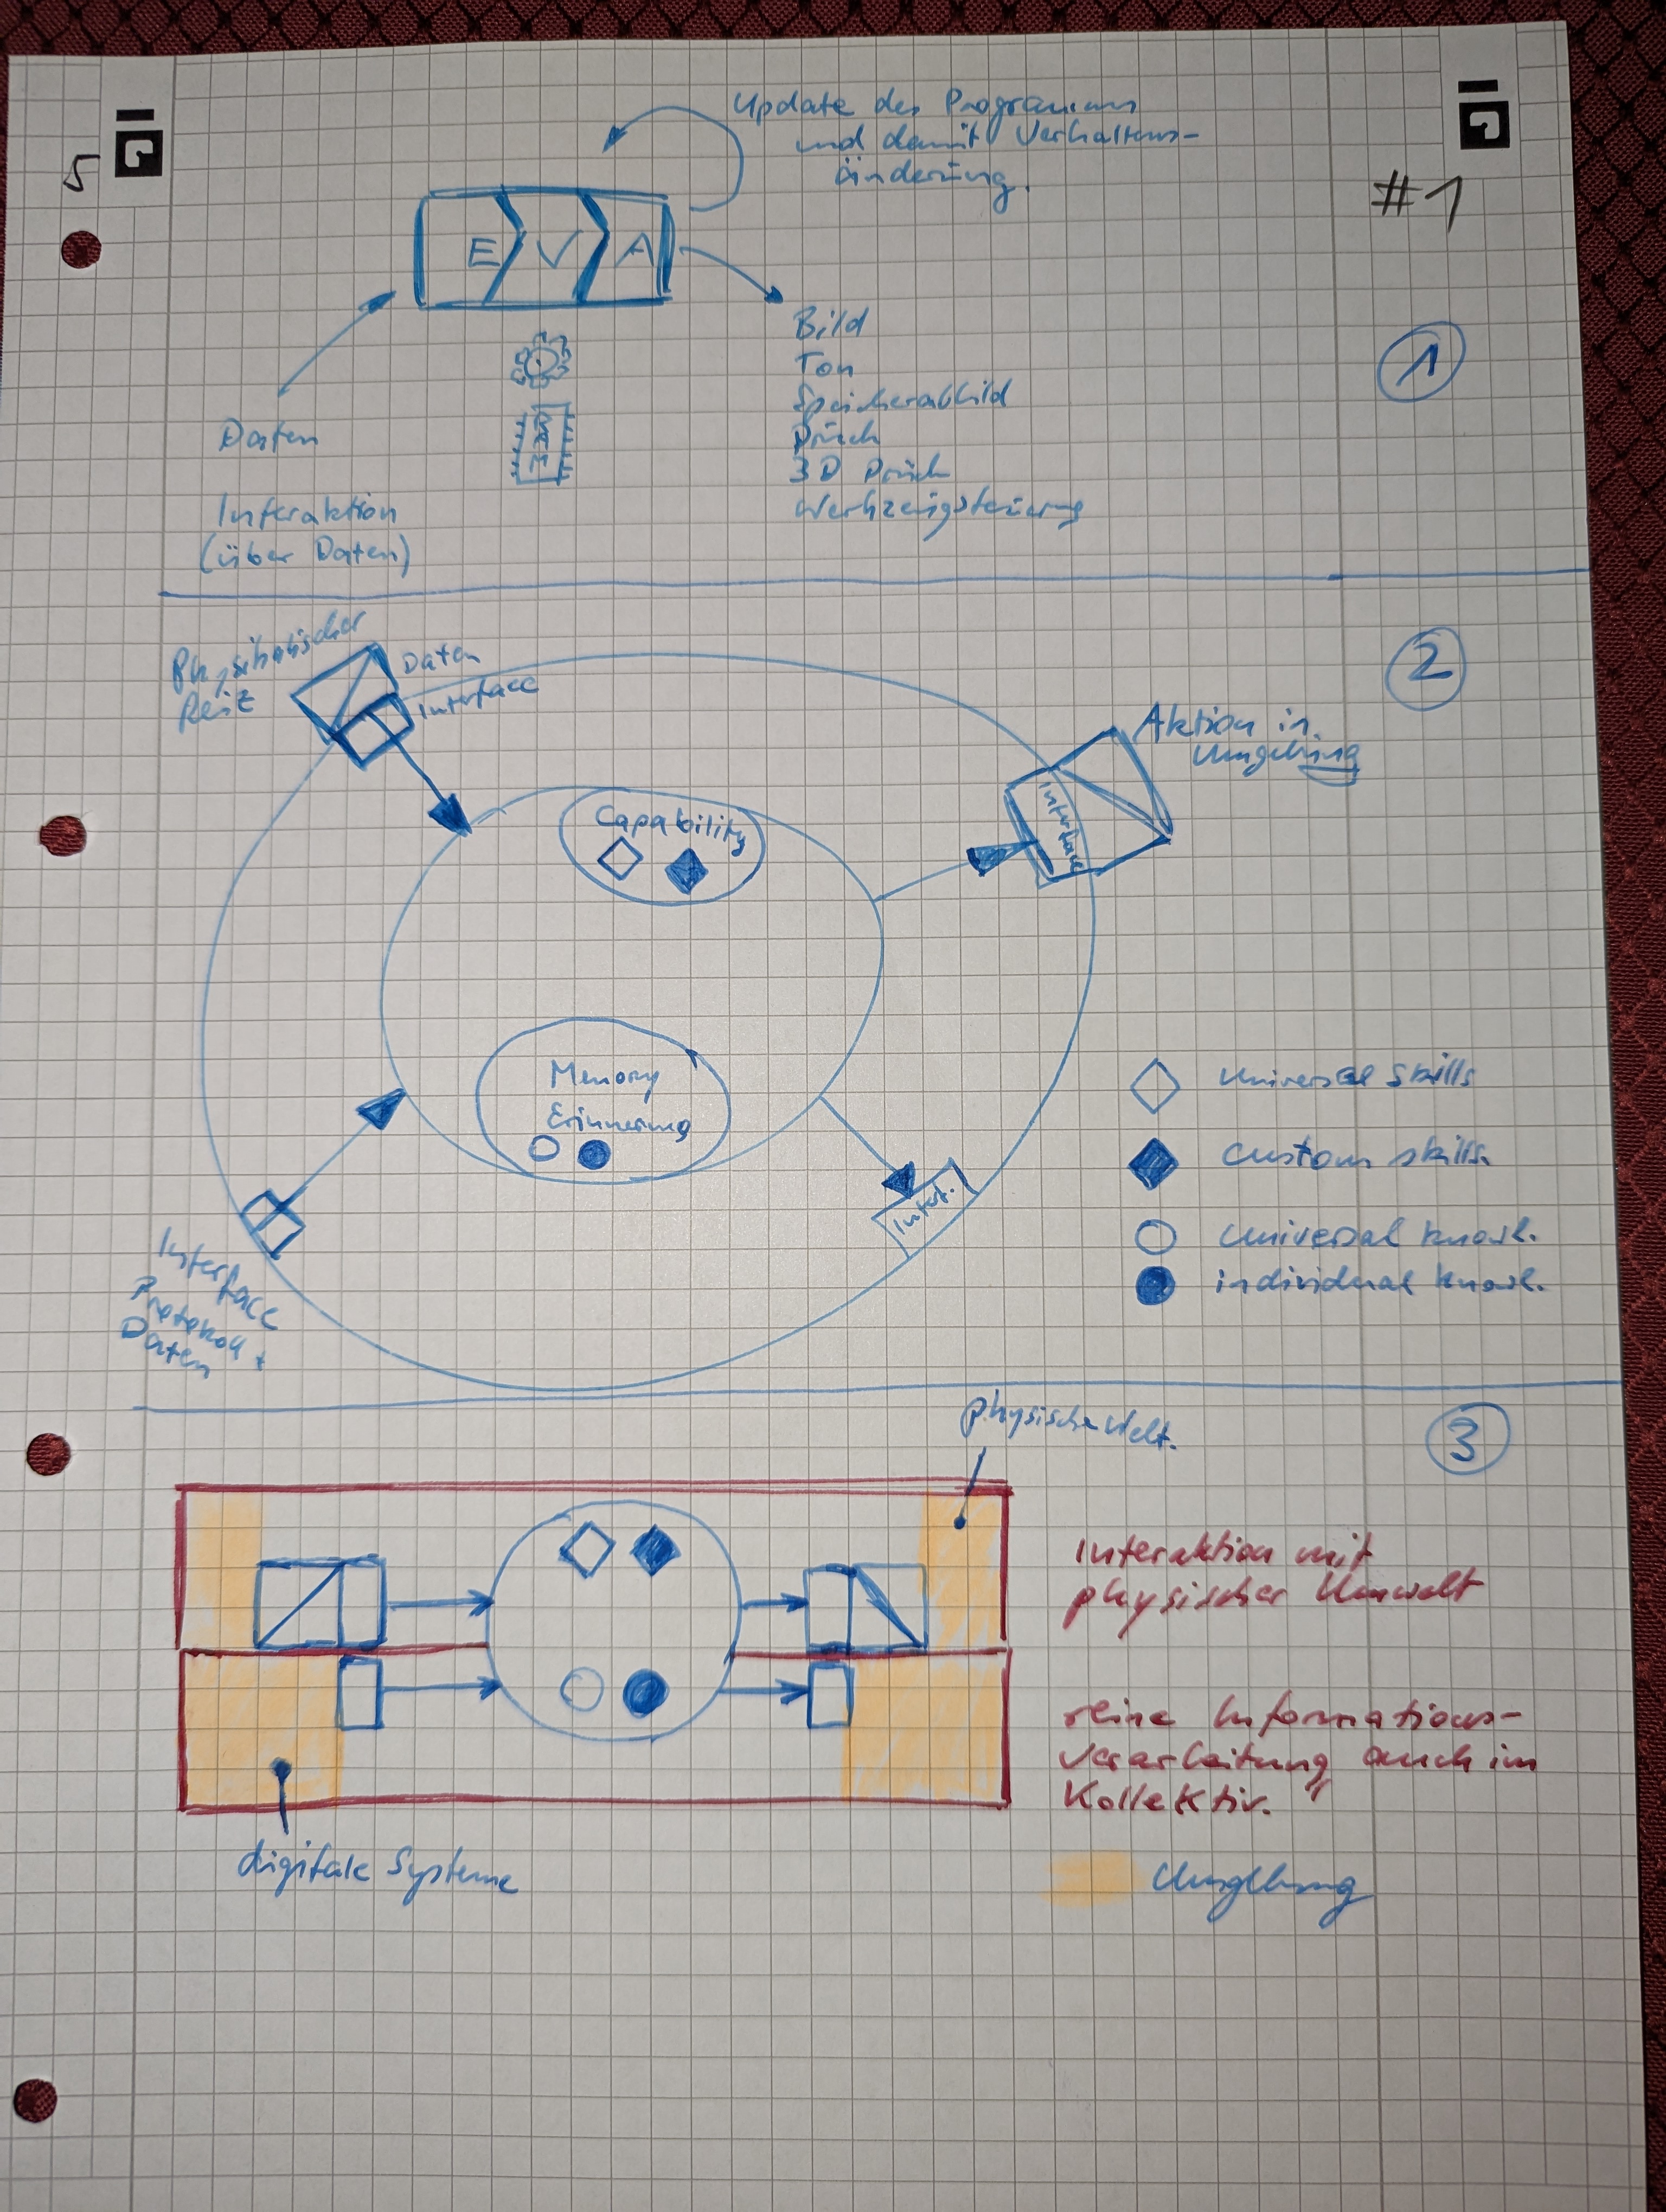 5
#1
Update des Programms
und damit Verhaltens-
änderung.
E V A
Bild
Ton
Speicherabbild
Druck
3D Druck
Werkzeugsteuerung
Daten
Interaktion
(über Daten)
1
2
Physikalischer
Reiz
Daten
Interface
Aktion in
Umgebung
Interface
Capability
Memory
Erinnerung
Interf.
Interface
Protokoll +
Daten
universal skills
custom skills.
universal knowl.
individual knowl.
3
physische Welt.
Interaktion mit
physischer Umwelt
reine Informations-
verarbeitung auch im
Kollektiv.
digitale Systeme
Umgebung